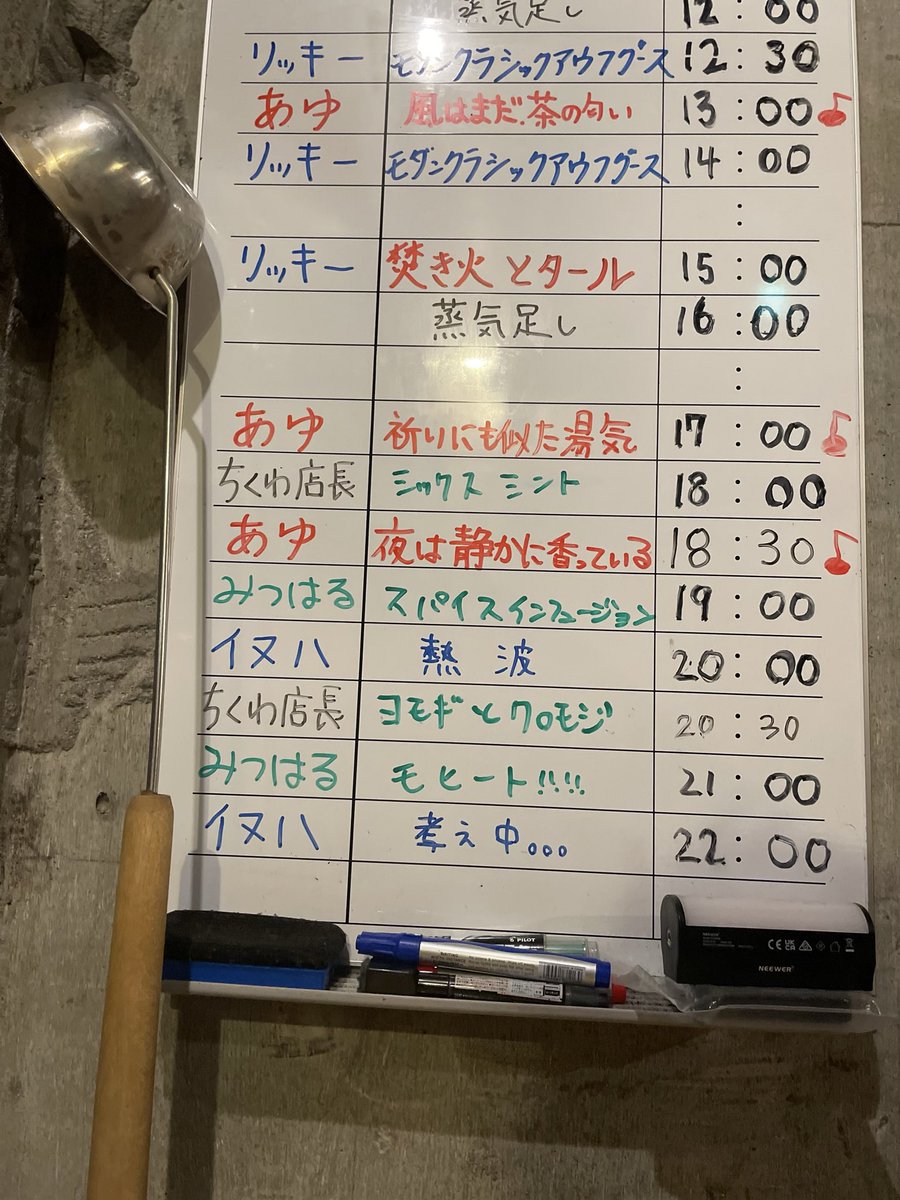 蒸気足し 12:00
リッキー モダンクラシックアウフグース 12:30
あゆ 風はまだ、茶の匂い 13:00
リッキー モダンクラシックアウフグース 14:00
:
リッキー 焚き火とタール 15:00
蒸気足し 16:00
:
あゆ 祈りにも似た湯気 17:00
ちくわ店長 シックス ミント 18:00
あゆ 夜は静かに香っている 18:30
みつはる スパイスインフュージョン 19:00
イヌハ 熱 波 20:00
ちくわ店長 ヨモギとクロモジ 20:30
みつはる モヒート!!!! 21:00
イヌハ 考え中... 22:00
PILOT
NEEWER